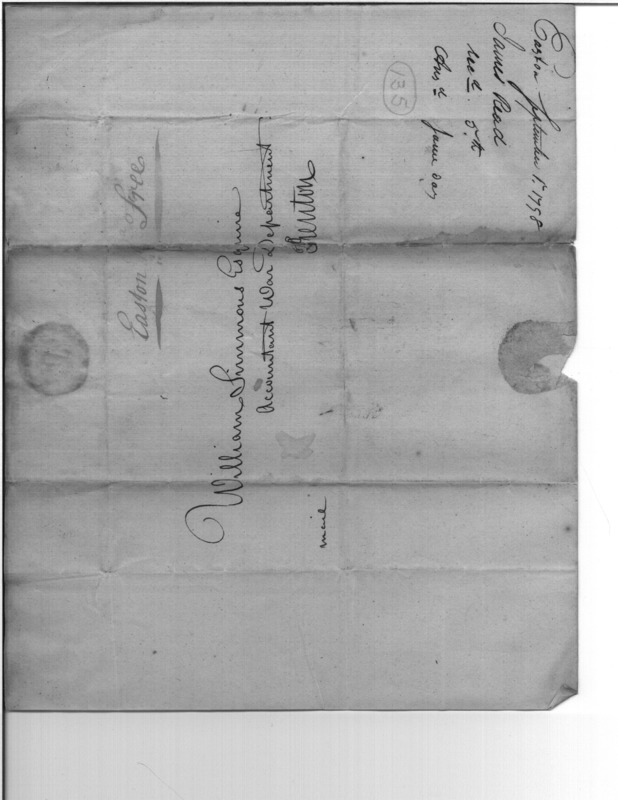 Easton September 1st. 1798
James Read
recd. 5th
Ansd same day
135
Easton
Free
William Simmons Esquire
Accountant War Department
Trenton
mail